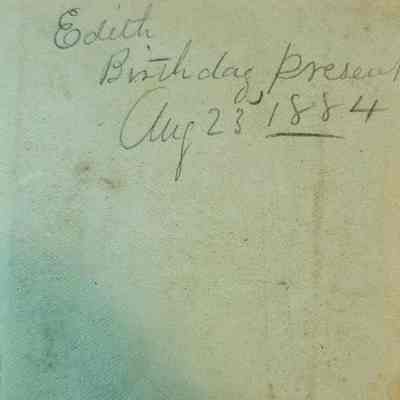 Edith
Birthday present
Aug 23 1884